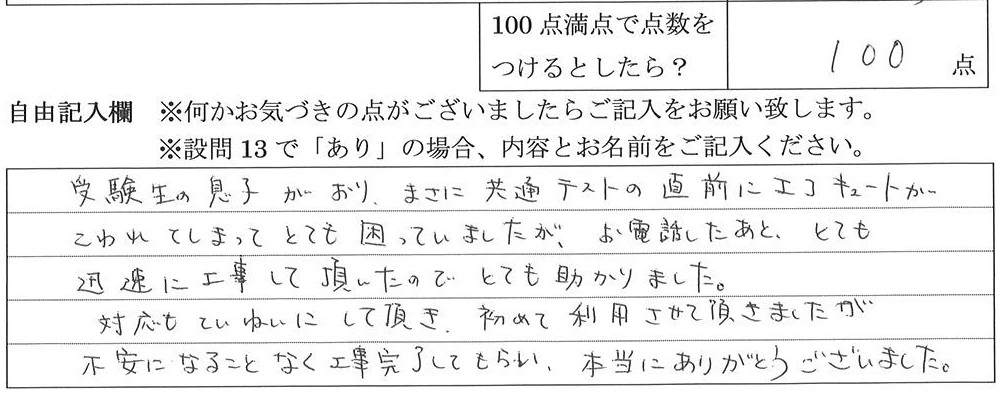 100点満点で点数を
つけるとしたら？
100 点
自由記入欄 ※何かお気づきの点がございましたらご記入をお願い致します。
※設問13で「あり」の場合、内容とお名前をご記入ください。
受験生の息子がおり、まさに共通テストの直前にエコキュートが
こわれてしまってとても困っていましたが、お電話したあと、とても
迅速に工事して頂いたのでとても助かりました。
対応もていねいにして頂き、初めて利用させて頂きましたが
不安になることなく工事完了してもらい、本当にありがとうございました。